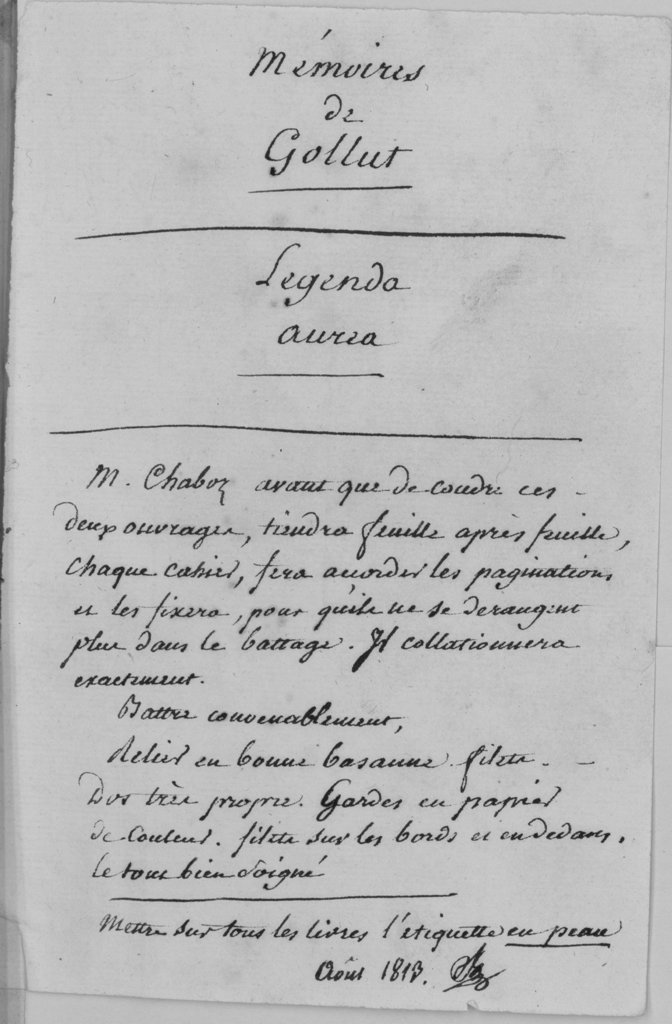 Mémoires
de
Gollut
Legenda
aurea
M. Chaboz avant que de coudre ces
deux ouvrages, tiendra feuille après feuille,
chaque cahier, fera accorder les paginations
et les fixera, pour qu'ils ne se derangent
plus dans le battage. Il collationnera
exactement.
Battre convenablement,
Relier en bonne basanne. filets.
Dos très propre. Gardes en papier
de couleur. filets sur les bords et en dedans.
le tout bien soigné
Mettre sur tous les livres l'etiquette en peau
Août 1813.